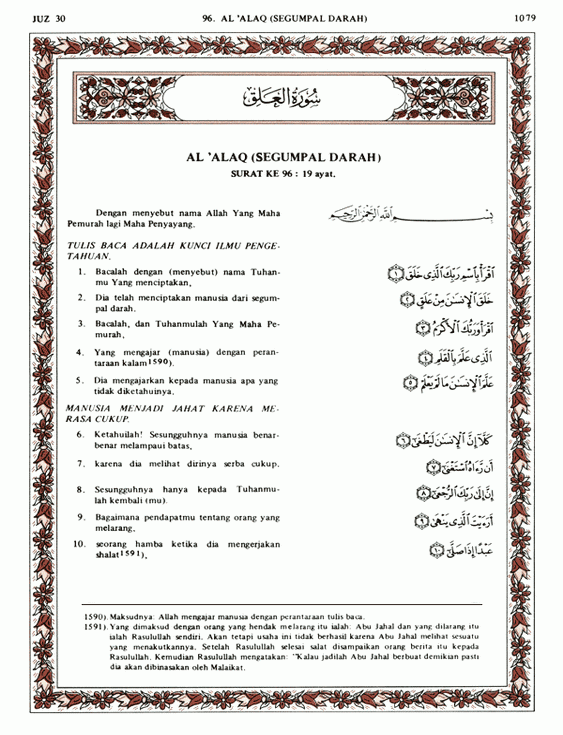 JUZ 30
96. AL 'ALAQ (SEGUMPAL DARAH)
1079
سُورَةُ الْعَلَقِ
AL 'ALAQ (SEGUMPAL DARAH)
SURAT KE 96 : 19 ayat.
Dengan menyebut nama Allah Yang Maha
Pemurah lagi Maha Penyayang.
بِسْمِ اللَّهِ الرَّحْمَٰنِ الرَّحِيمِ
TULIS BACA ADALAH KUNCI ILMU PENGE-
TAHUAN.
1. Bacalah dengan (menyebut) nama Tuhan-
mu Yang menciptakan,
اقْرَأْ بِاسْمِ رَبِّكَ الَّذِي خَلَقَ ﴿١﴾
2. Dia telah menciptakan manusia dari segum-
pal darah.
خَلَقَ الْإِنْسَانَ مِنْ عَلَقٍ ﴿٢﴾
3. Bacalah, dan Tuhanmulah Yang Maha Pe-
murah,
اقْرَأْ وَرَبُّكَ الْأَكْرَمُ ﴿٣﴾
4. Yang mengajar (manusia) dengan peran-
taraan kalam1590).
الَّذِي عَلَّمَ بِالْقَلَمِ ﴿٤﴾
5. Dia mengajarkan kepada manusia apa yang
tidak diketahuinya.
عَلَّمَ الْإِنْسَانَ مَا لَمْ يَعْلَمْ ﴿٥﴾
MANUSIA MENJADI JAHAT KARENA ME-
RASA CUKUP.
6. Ketahuilah! Sesungguhnya manusia benar-
benar melampaui batas,
كَلَّا إِنَّ الْإِنْسَانَ لَيَطْغَىٰ ﴿٦﴾
7. karena dia melihat dirinya serba cukup.
أَنْ رَآهُ اسْتَغْنَىٰ ﴿٧﴾
8. Sesungguhnya hanya kepada Tuhanmu-
lah kembali (mu).
إِنَّ إِلَىٰ رَبِّكَ الرُّجْعَىٰ ﴿٨﴾
9. Bagaimana pendapatmu tentang orang yang
melarang,
أَرَأَيْتَ الَّذِي يَنْهَىٰ ﴿٩﴾
10. seorang hamba ketika dia mengerjakan
shalat1591),
عَبْدًا إِذَا صَلَّىٰ ﴿١٠﴾
1590). Maksudnya: Allah mengajar manusia dengan perantaraan tulis baca.
1591). Yang dimaksud dengan orang yang hendak melarang itu ialah: Abu Jahal dan yang dilarang itu
ialah Rasulullah sendiri. Akan tetapi usaha ini tidak berhasil karena Abu Jahal melihat sesuatu
yang menakutkannya. Setelah Rasulullah selesai salat disampaikan orang berita itu kepada
Rasulullah. Kemudian Rasulullah mengatakan: "Kalau jadilah Abu Jahal berbuat demikian pasti
dia akan dibinasakan oleh Malaikat.